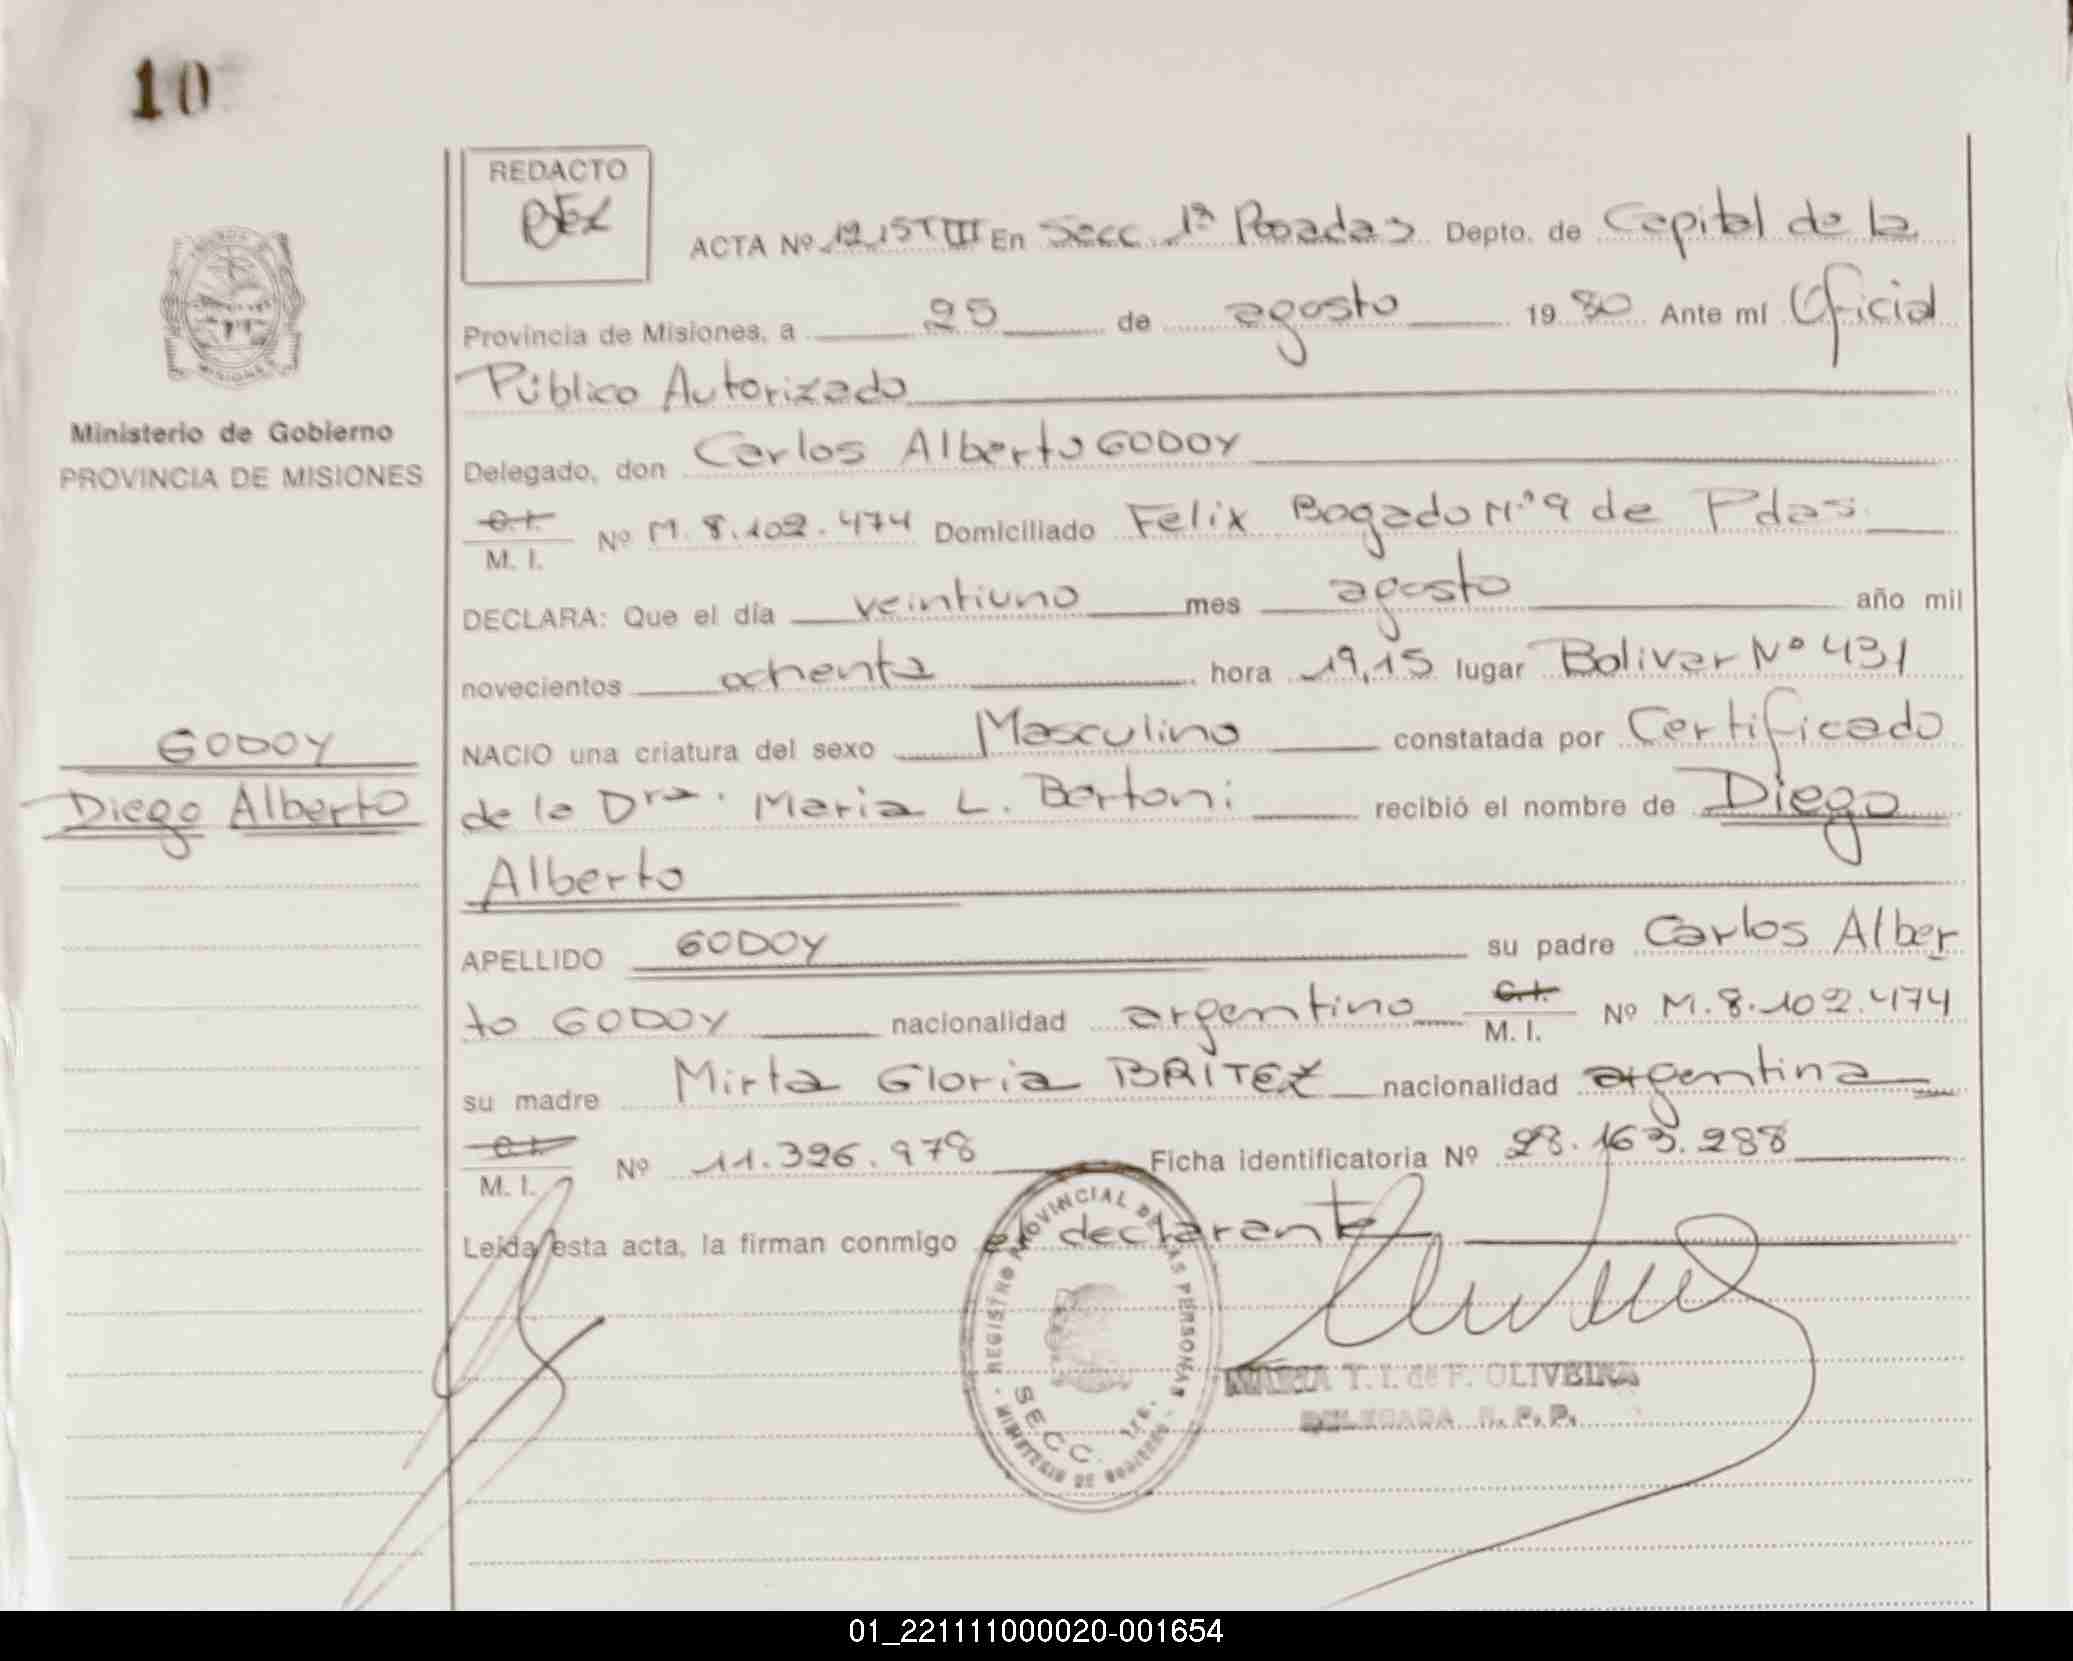 10
REDACTO
ACTA Nº 1215 T III En Secc. 1ª Posadas Depto. de Capital de la
Provincia de Misiones, a 25 de agosto 1980 Ante mí Oficial
Público Autorizado
Ministerio de Gobierno
PROVINCIA DE MISIONES
Delegado, don Carlos Alberto GODOY
C.I.
M. I. Nº M. 8.102.474 Domiciliado Felix Bogado Nº 9 de Pdas.
DECLARA: Que el día veintiuno mes agosto año mil
novecientos ochenta hora 19,15 lugar Bolivar Nº 431
GODOY
Diego Alberto
NACIO una criatura del sexo Masculino constatada por Certificado
de la Dra. Maria L. Bertoni recibió el nombre de Diego
Alberto
APELLIDO GODOY su padre Carlos Alber
to GODOY nacionalidad argentino C.I. M. I. Nº M. 8.102.474
su madre Mirta Gloria BRITEZ nacionalidad argentina
C.I.
M. I. Nº 11.326.978 Ficha identificatoria Nº 28.163.288
Leída esta acta, la firman conmigo el declarante
REGISTRO PROVINCIAL DE LAS PERSONAS
MINISTERIO DE GOBIERNO
SECC. 1ra.
MARIA T. I. de F. OLIVEIRA
DELEGADA R. P. P.
01_221111000020-001654